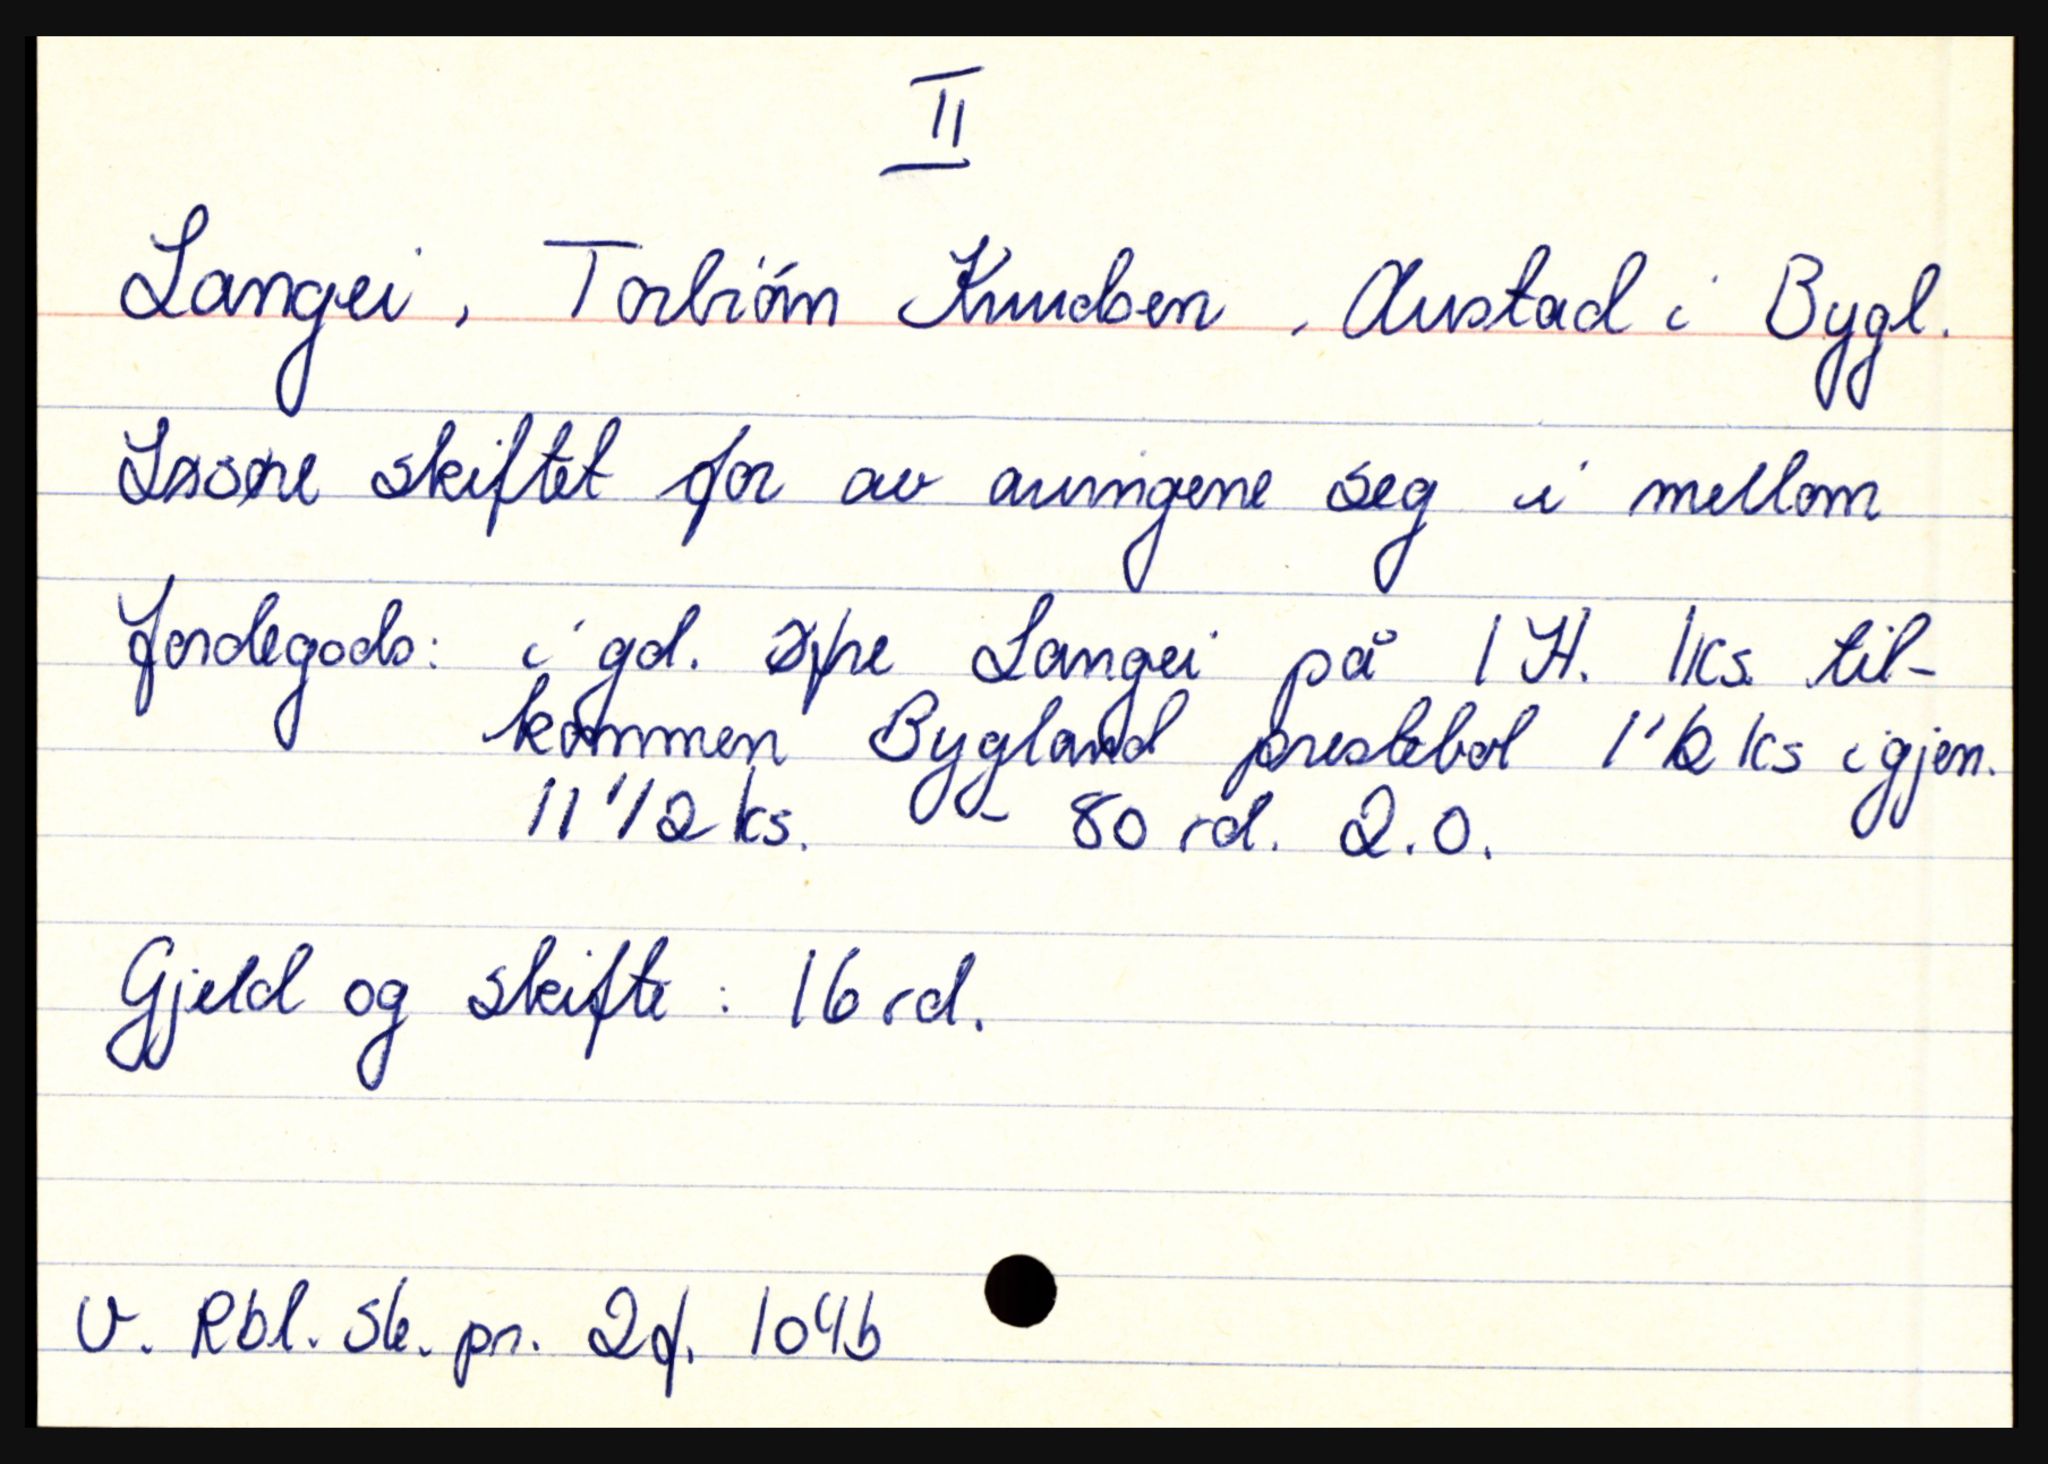 II
Langei, Torbiörn Knudsen, Austad i Bygl.
Løsøre skiftet for av arvingene seg i mellom
Jordegods: i gd. Øfre Langei på 1 H. 1ks. til-
kommen Bygland prestebol 1 1/2 ks igjen.
11 1/2 ks. - 80 rd. 2.0.
Gjeld og skifte: 16 rd.
V. Rbl. Sk. pr. 2 f. 104b